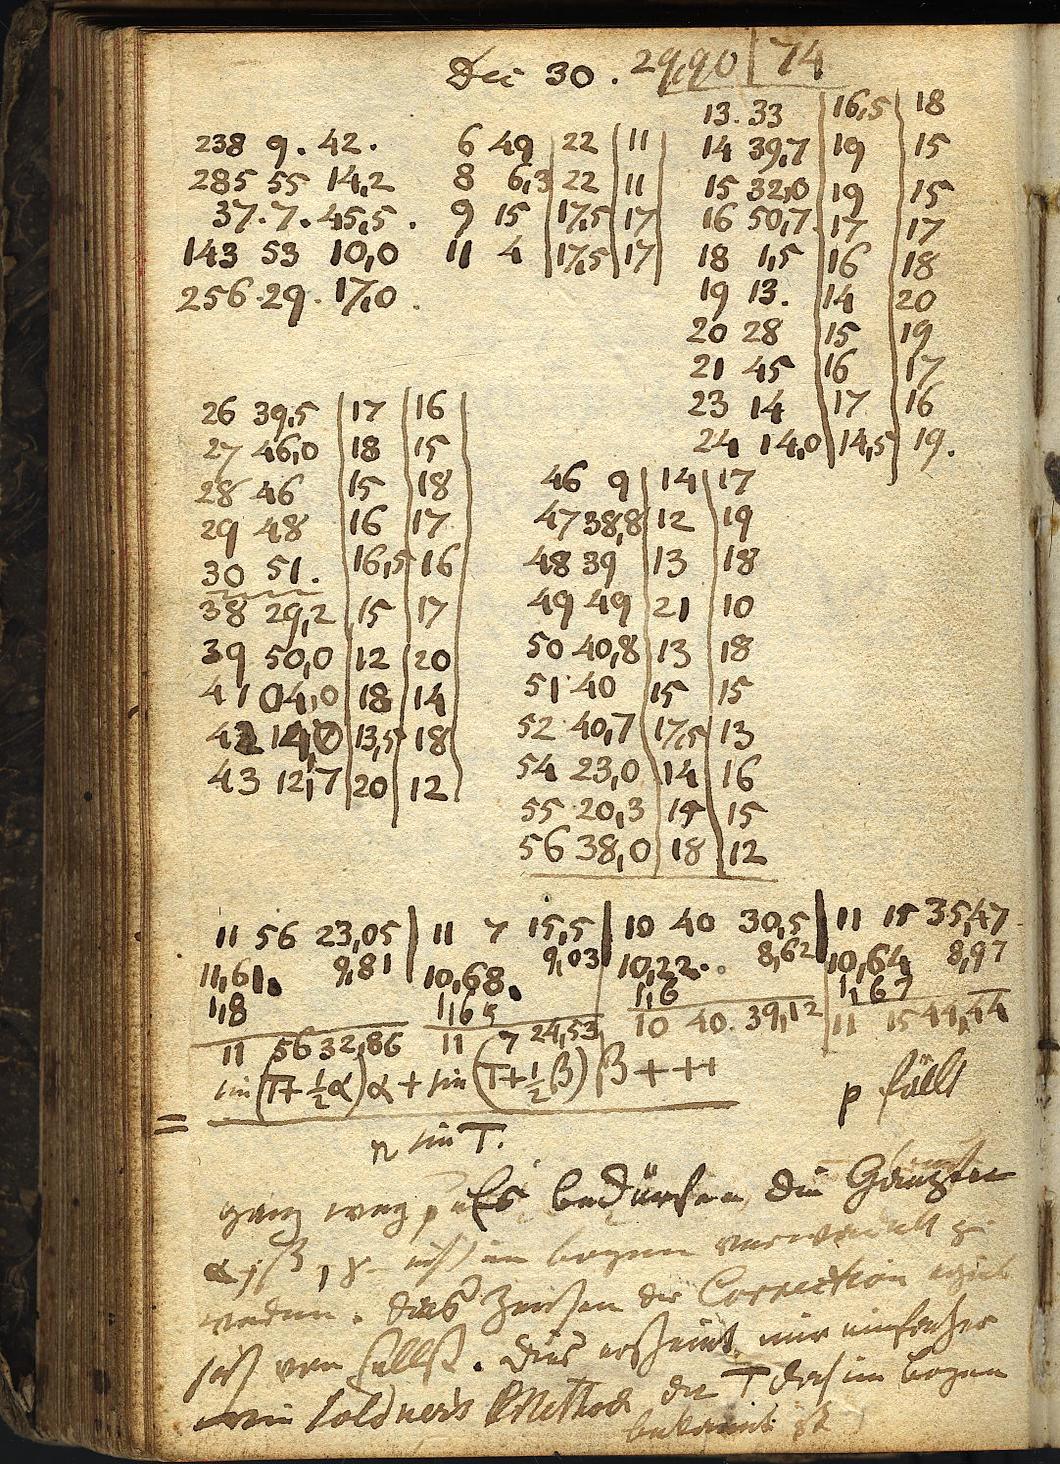 Dec 30. 29,90 | 74
238 9. 42.
285 55 14,2
37. 7. 45,5.
143 53 10,0
256. 29. 17,0.
6 49 | 22 | 11
8 6,3 | 22 | 11
9 15 | 17,5 | 17
11 4 | 17,5 | 17
13. 33 | 16,5 | 18
14 39,7 | 19 | 15
15 32,0 | 19 | 15
16 50,7 | 17 | 17
18 1,5 | 16 | 18
19 13. | 14 | 20
20 28 | 15 | 19
21 45 | 16 | 17
23 14 | 17 | 16
24 14,0 | 14,5 | 19.
26 39,5 | 17 | 16
27 46,0 | 18 | 15
28 46 | 15 | 18
29 48 | 16 | 17
30 51. | 16,5 | 16
38 29,2 | 15 | 17
39 50,0 | 12 | 20
41 04,0 | 18 | 14
42 | 13,5 | 18
43 12,7 | 20 | 12
46 9 | 14 | 17
47 38,8 | 12 | 19
48 39 | 13 | 18
49 49 | 21 | 10
50 40,8 | 13 | 18
51 40 | 15 | 15
52 40,7 | 17,5 | 13
54 23,0 | 14 | 16
55 20,3 | 15 | 15
56 38,0 | 18 | 12
11 56 23,05 | 11 7 15,5 | 10 40 30,5 | 11 15 35,47
11,61. 9,81 | 10,68. 9,03 | 10,22. 8,62 | 10,64 8,97
1,8 | 1,65 | 1,6 | 1,67
11 56 32,86 | 11 7 24,53 | 10 40. 39,12 | 11 15 44,44
sin (T+½α) α + sin (T+½β) β + ++
= n sin T.
p fällt
ganz weg Es bedürfen die
α, β, γ in bogen verwandelt z
werden. das Zeichen der Correction
von selbst. Dies erscheint mir einfacher
Soldners Methode die T doch im bogen
bekannt ist